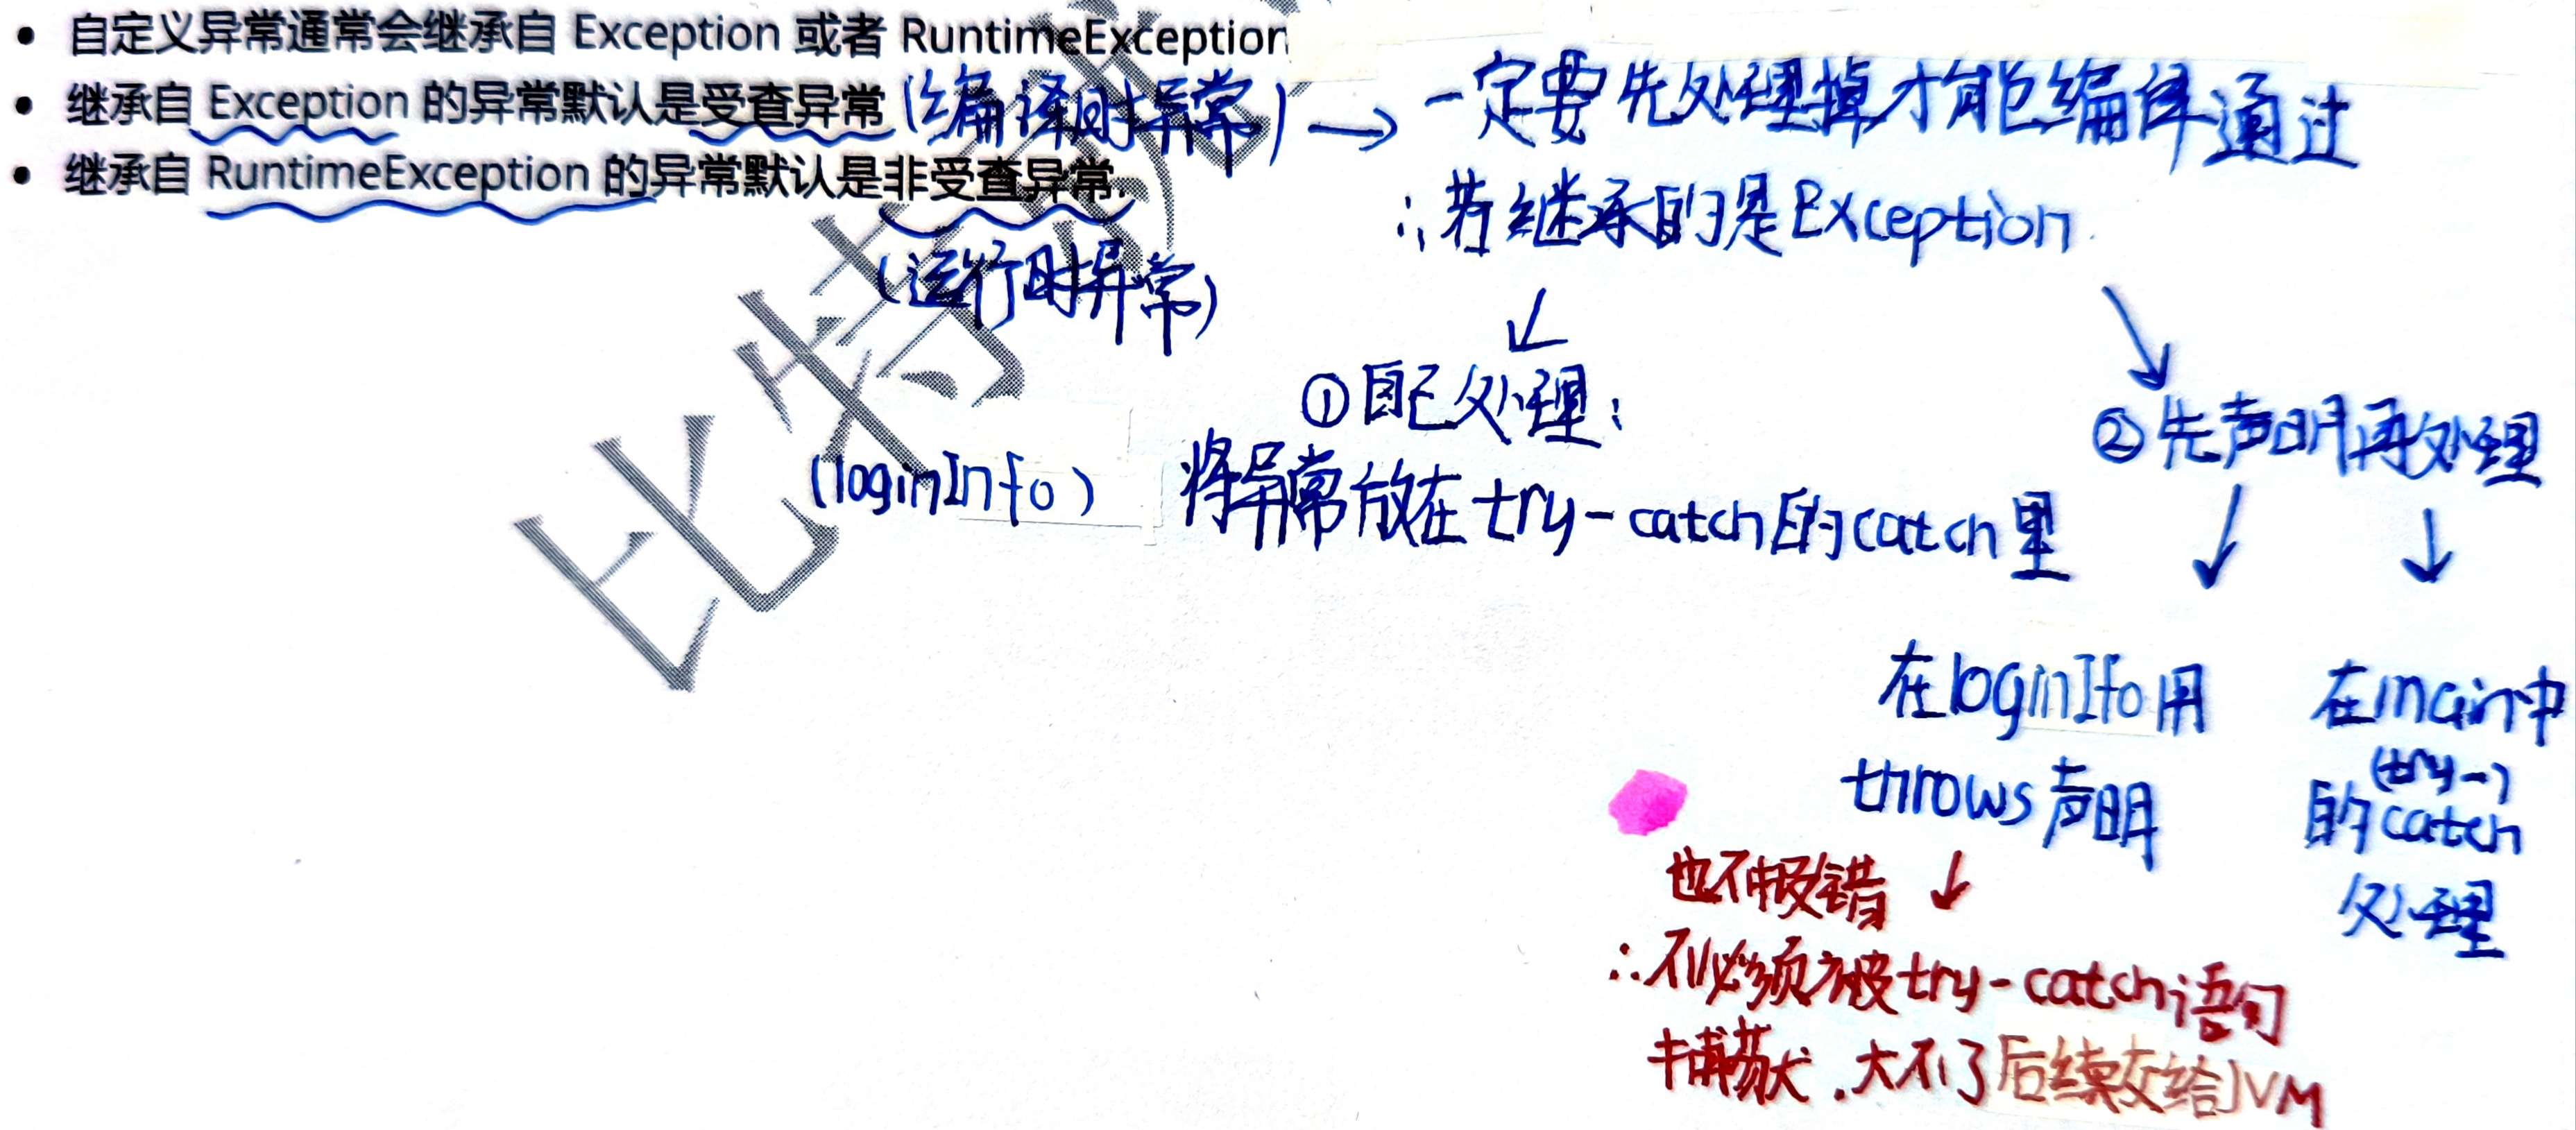 • 自定义异常通常会继承自 Exception 或者 RuntimeException
• 继承自 Exception 的异常默认是受查异常 (编译时异常) → 一定要先处理掉才能编译通过
• 继承自 RuntimeException 的异常默认是非受查异常.
(运行时异常)
∴若继承的是Exception
①自己处理:
(loginInfo) 将异常放在try-catch的catch里
②先声明再处理
在loginIfo用
throws声明
在main中
(try-)
的catch
处理
也不报错 ↓
∴不必须被try-catch语句
捕获, 大不了后续交给JVM
比特